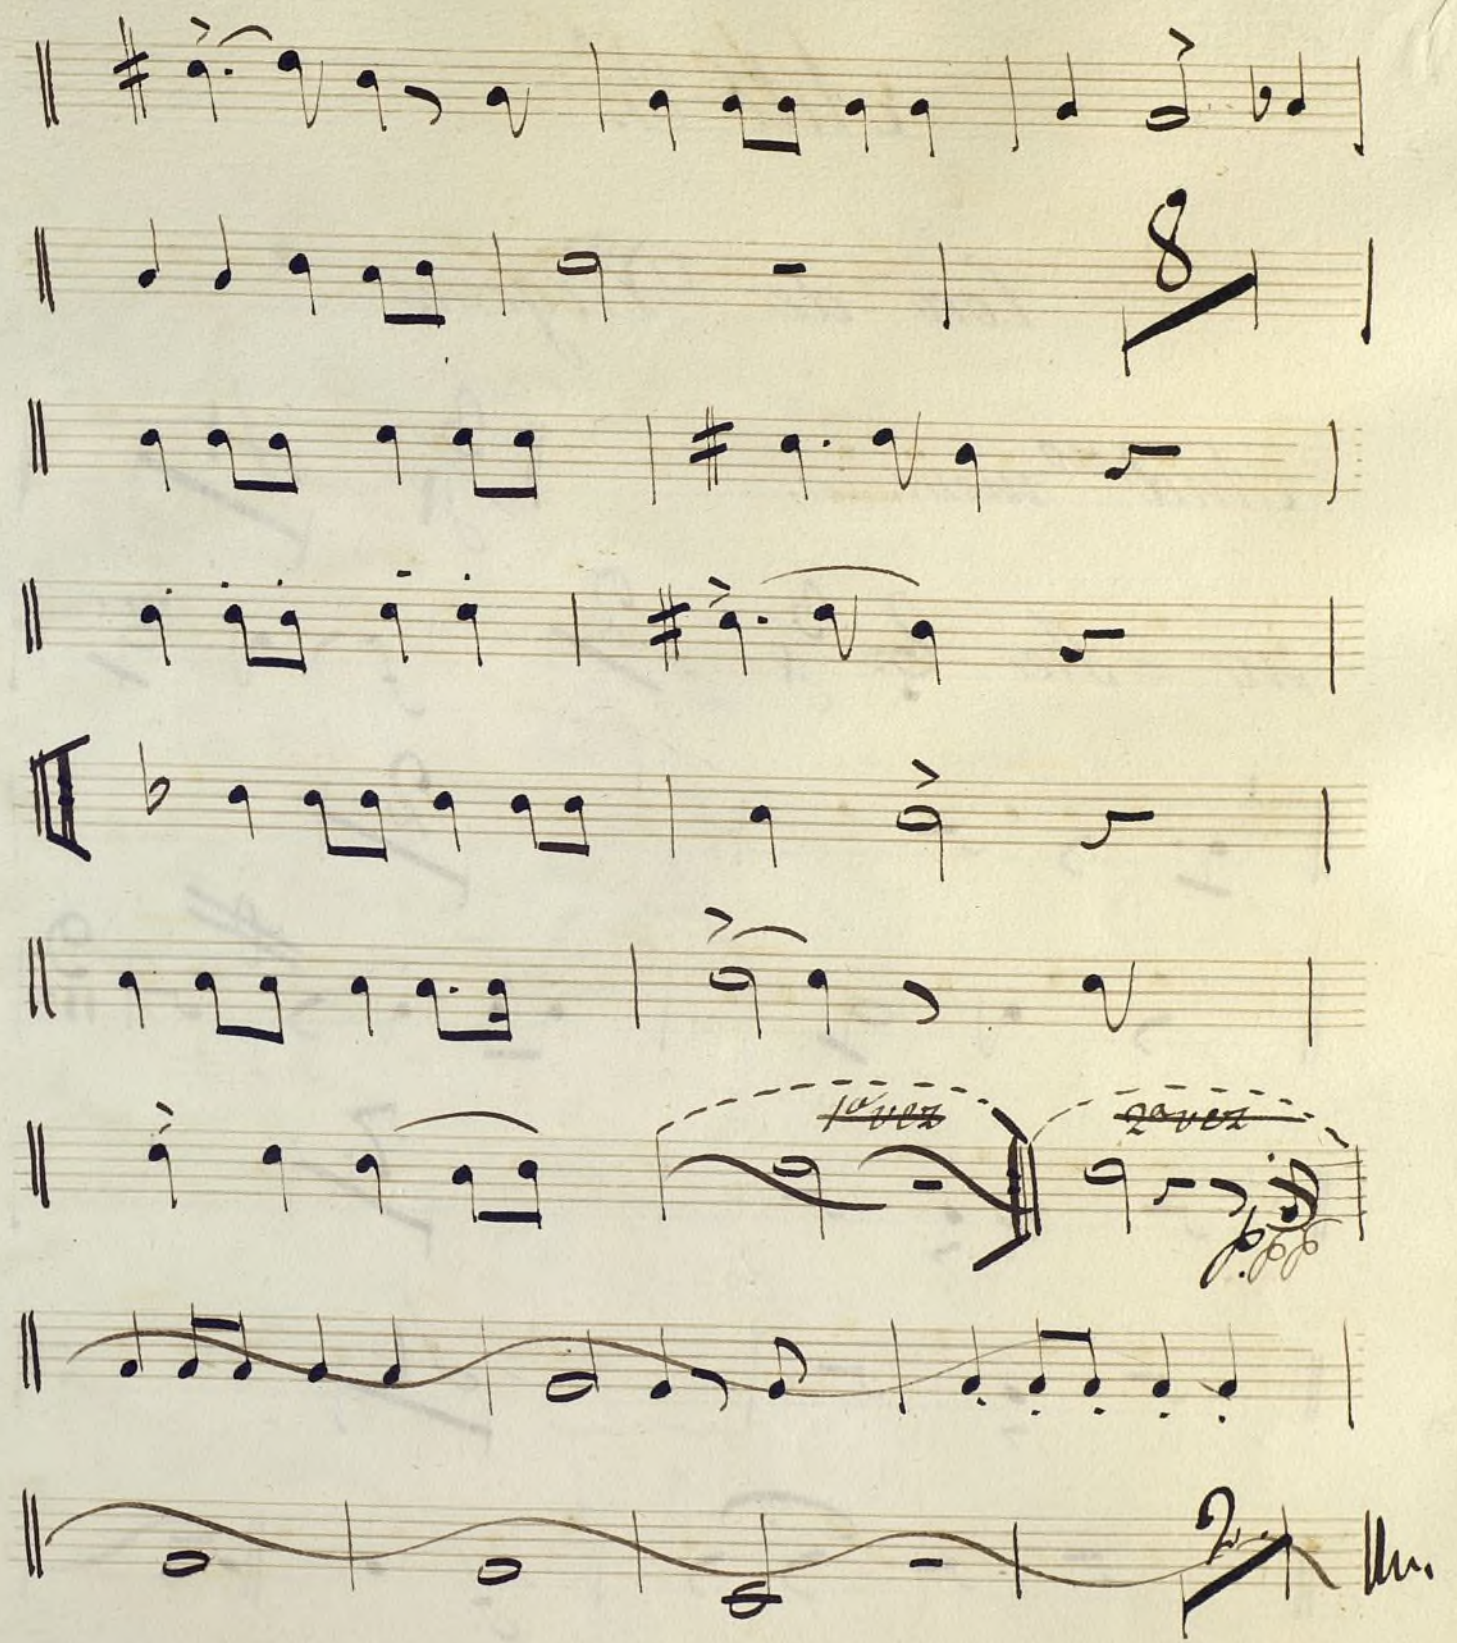 8
1ª vez 2ª vez
p.pp
2